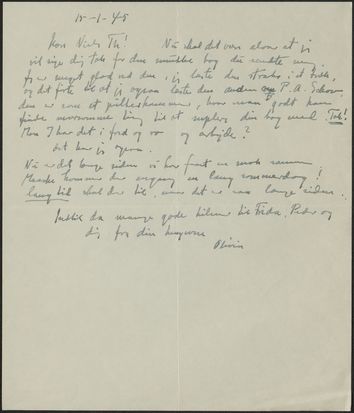 15-1-45
Kære Niels Th! Nu skal det være alvor at jeg
vil sige dig tak for den smukke bog du sendte mig.
Jeg er meget glad ved den, jeg læste den straks i et træk,
og det førte til at jeg ogsaa læste den anden af P. A. Schou
den er som et pulterkammer, hvor man godt kan
finde morsomme ting til at supplere din bog med. Tak!
Mon I har det i fred og ro og arbejde?
det har jeg ogsaa.
Nu er det længe siden vi har faaet en snak sammen
Maaske kommer der engang en lang sommerdag!
lang til skal der til, naar det er saa længe siden.
Indtil da mange gode hilsner til Frida, Peder og
dig fra din hengivne
Olivia